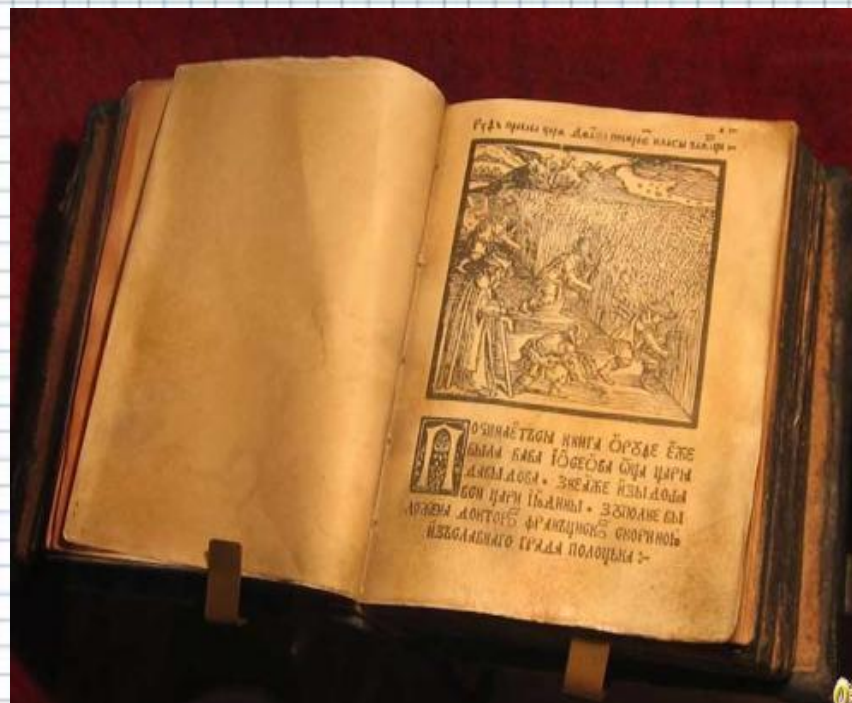 Руѳь прабаба царя
ПОЧИНАЕТЬСЯ КНИГА О РУѲЕ ЕЖЕ
БЫЛА БАБА ІОСЕѲОВА ѾЦА ЦАРЯ
ДАВЫДОВА · ЗНЕЯЖЕ ИЗЫДОША
ВСИ ЦАРИ ІЮДИНЫ · ЗУПОЛНЕ ВЫ
ЛОЖЕНА ДОКТОРОМ ФРАНЦИСКОМ СКОРИНОЮ
ИЗЪСЛАВНАГО ГРАДА ПОЛОЦЬКА :~